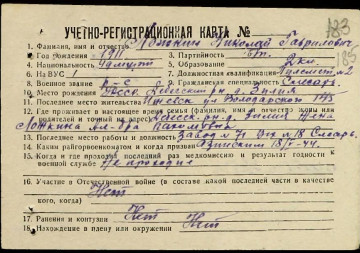 183
УЧЕТНО-РЕГИСТРАЦИОННАЯ КАРТА №
185
1. Фамилия, имя и отчество Николай Гаврилович
2. Год рождения 1911 3. Партийность б/п
4. Национальность Удмурт 5. Образование 2 кл.
6. На ВУС 1 7. Должностная квалификация
8. Военное звание 9. Гражданская специальность Слесарь
10. Место рождения УАССР, Дебесский р-н, д.
11. Последнее место жительства Ижевск ул. Володарского
12. Где проживает в настоящее время семья (фамилия, имя и отчество жены или родителей и точный их адрес) Жена
13. Последнее место работы и должность Завод № 71 Цех № 18 Слесарь.
14. Каким райгорвоенкоматом и когда призван Азинским 18/V-44.
15. Когда и где проходил последний раз медкомиссию и результат годности к
военной службе Не проходил
16. Участие в Отечественной войне (в составе какой последней части в качестве
кого, когда) Нет
17. Ранения и контузии Нет
18. Нахождение в плену или окружении Нет